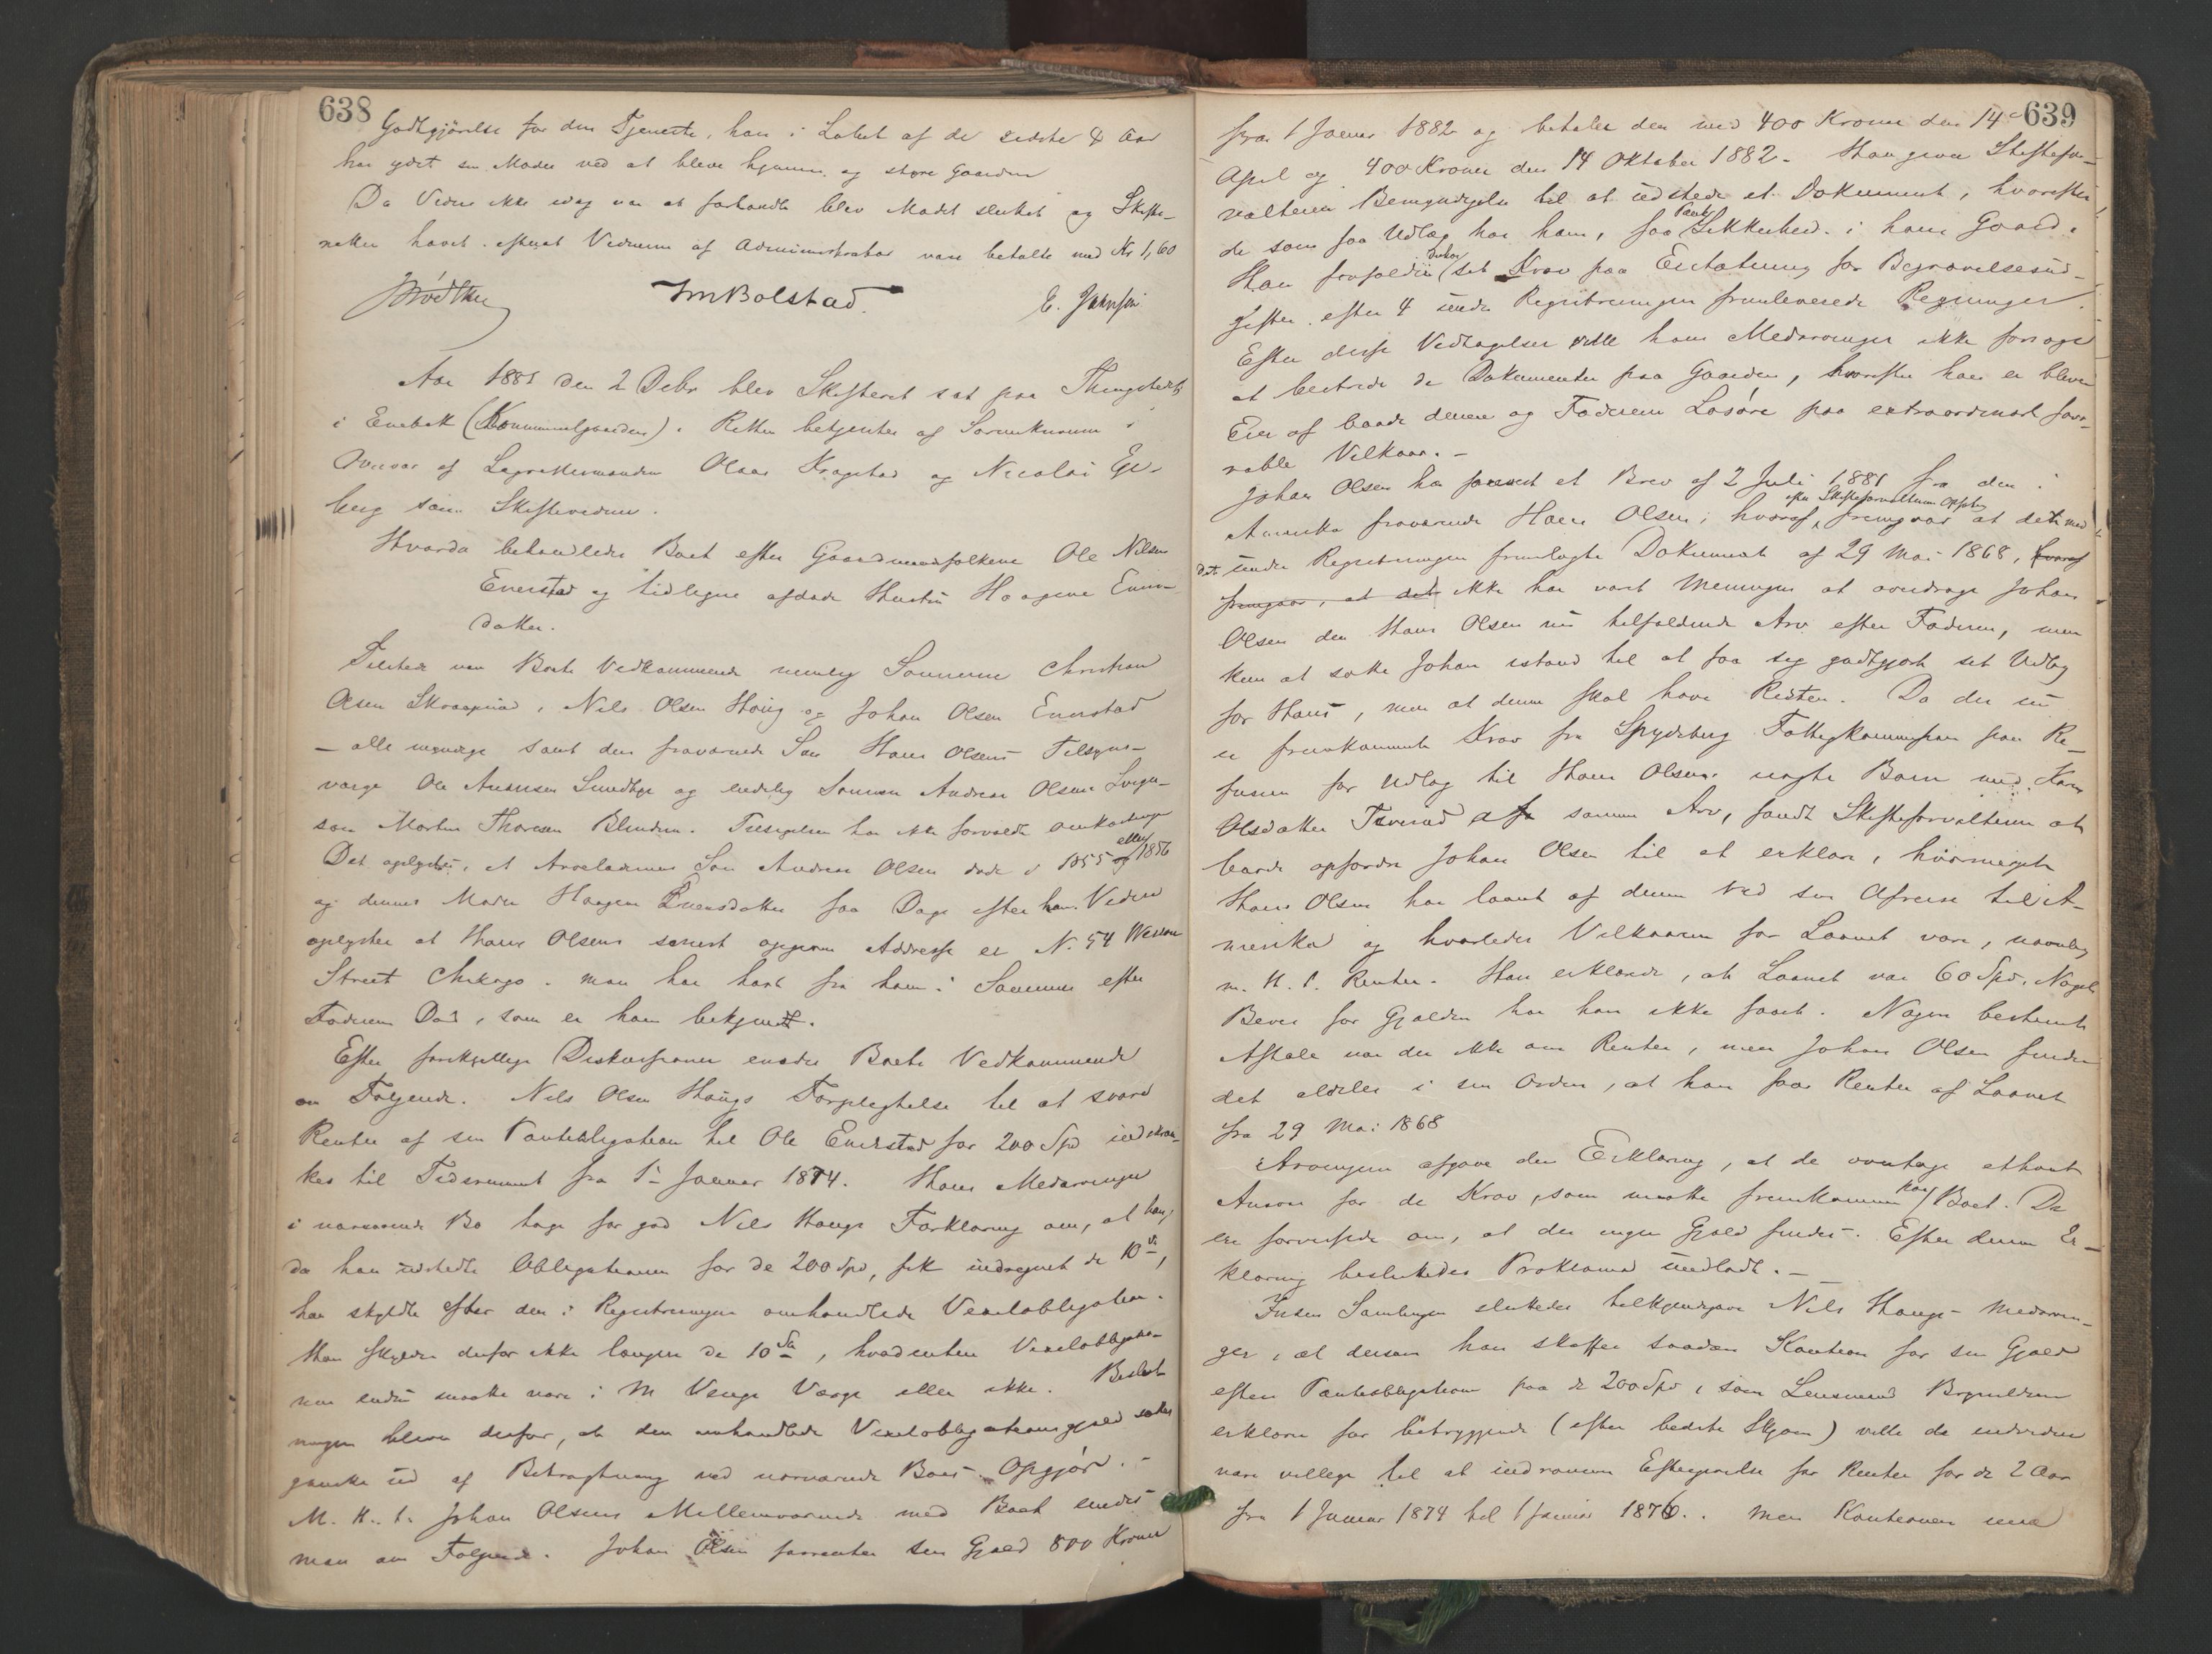 638
Godtgjörelse for den Tjeneste, han i Løbet af de sidste 4 Aar
har ydet sin Moder ved at bleve hjemme og styre Gaarden
Da Videre ikke idag var at forhandle blev Mødet sluttet og Skifte-
retten hævet efterat Vidnerne af Administrator vare betalte med Kr 1,60
JmBolstad. E. Johnsen
Aar 1881 den 2 Debr blev Skifteret sat paa Thingstedet
i Enebak (Kommunelgaarden). Retten betjentes af Sorenskriveren i
Overvær af Lagrettemændene Olaus Kragstad og Nicolai Ek-
berg som Skiftevidner.
Hvorda behandledes Boet efter Gaardmandsfolkene Ole Nilsen
Enerstad og tidligere afdøde Hustru Haagine Evens-
datter.
Tilstede var Boets Vedkommende nemlig Sønnerne Christian
Olsen Skraaperud, Nils Olsen Houg og Johan Olsen Enerstad
- alle myndige samt den fraværende Søn Hans Olsens Tilsyns-
værge Ole Andersen Sundby og endelig Sønnen Andreas Olsens
som Morten Thoresen Tilsigelsen har ikke forvoldt omkostninger
Det oplystes, at Arveladernes Søn Andreas Olsen døde i 1855 eller 1856
og dennes Moder Haagine Evensdatter faa Dage efter ham. Videre
oplystes at Hans Olsens senest opgivne Addresse er N. 54 Wesson
Street Chikago. man har hørt fra ham i Sommer efter
Faderens Død, som er ham bekjendt.
Efter forskjellige Diskussioner enedes Boets Vedkommende
om Følgende. Nils Olsen Hougs Forpligtelse til at svare
Renter af sin Panteobligation til Ole Enerstad for 200 Spd indskræn-
kes til Tidsrummet fra 1ste Januar 1874. Hans Medarvinger
i nærværende Bo tage for god Nils Hougs Forklaring om, at han,
da han udstedte Obligationen for de 200 Spd, fik indregnet de 10 Sp,
han skyldte efter den i Registreringen omhandlede Vexelobligation.
Han skylder derfor ikke længere de 10 Sp, hvadenten Vexelobligatio-
nen endnu maatte være i M Venge Værge eller ikke. Beslut-
ningen bliver derfor, at den omhandlede Vexelobligationsgjæld sættes
ganske ud af Betragtning ved nærværende Boes Opgjør. -
M. H. t. Johan Olsens Mellemværende med Boet enedes
man om Følgende. Johan Olsen forrenter sin Gjæld 800 Kroner
639
fra 1 Januar 1882 og betaler den med 400 Kroner den 14de
April og 400 Kroner den 14 Oktober 1882. Han giver Skiftefor-
valteren Bemyndigelse til at udstede et Dokument, hvorefter
de som faa Udlæg hos ham, faa Pant Sikkerhed i hans Gaard.
Han frafalder sit Krav paa Erstatning for Begravelsesud-
gifter efter 4 under Registreringen fremleverede Regninger.
Efter disse Vedtagelser ville hans Medarvinger ikke forsøge
at bestride de Dokumenter paa Gaarden, hvorefter han er bleven
Eier af baade denne og Faderens Løsøre paa extraordinært favo-
rable Vilkaar. -
Johan Olsen har forevist et Brev af 2 Juli 1881 fra den i
Amerika fraværende Hans Olsen, hvoraf efter Skifteforvalterens Opfatn. fremgaar at det med
det under Registreringen fremlagte Dokument af 29 Mai 1868, hvoraf
fremgaar, at det ikke har været Meningen at overdrage Johan
Olsen den Hans Olsen nu tilfaldende Arv efter Faderen, men
kun at sætte Johan istand til at faa sig godtgjort sit Udlæg
for Hans, men at denne skal have Resten. Da der nu
er fremkommet Krav fra Spydeberg Fattigkommission paa Re-
fusion for Udlæg til Hans Olsens uægte Barn med Karen
Olsdatter Tverud af samme Arv, fandt Skifteforvalteren at
burde opfordre Johan Olsen til at erklære, hvormeget
Hans Olsen har laant af denne ved sin Afreise til A-
merika og hvorledes Vilkaarene for Laanet vare, navnlig
m. H. t. Renter. Han erklærede, at Laanet var 60 Spd. Noget
Bevis for Gjælden har han ikke faaet. Nogen bestemt
Aftale var der ikke om Renter, men Johan Olsen finder
det aldeles i sin Orden, at han faar Renter af Laanet
fra 29 Mai 1868
Arvingerne afgave den Erklæring, at de overtage ethvert
Ansvar for de Krav, som maatte fremkomme paa Boet. De
ere forvissede om, at der ingen Gjæld findes. Efter denne Er-
klæring besluttedes Proklama undladt. -
Inden Samlingen sluttedes tilkjendegave Nils Hougs Medarvin-
ger, at dersom han skaffer saadan Kaution for sin Gjæld
efter Panteobligationen paa de 200 Spd, som Lensmand
erklærer for betryggende (efter bedste Skjøn) ville de endvidere
være villige til at indrømme Eftergivelse for Renter for de 2 Aar
fra 1 Januar 1874 til 1 Januar 1876. Men Kautionen maa